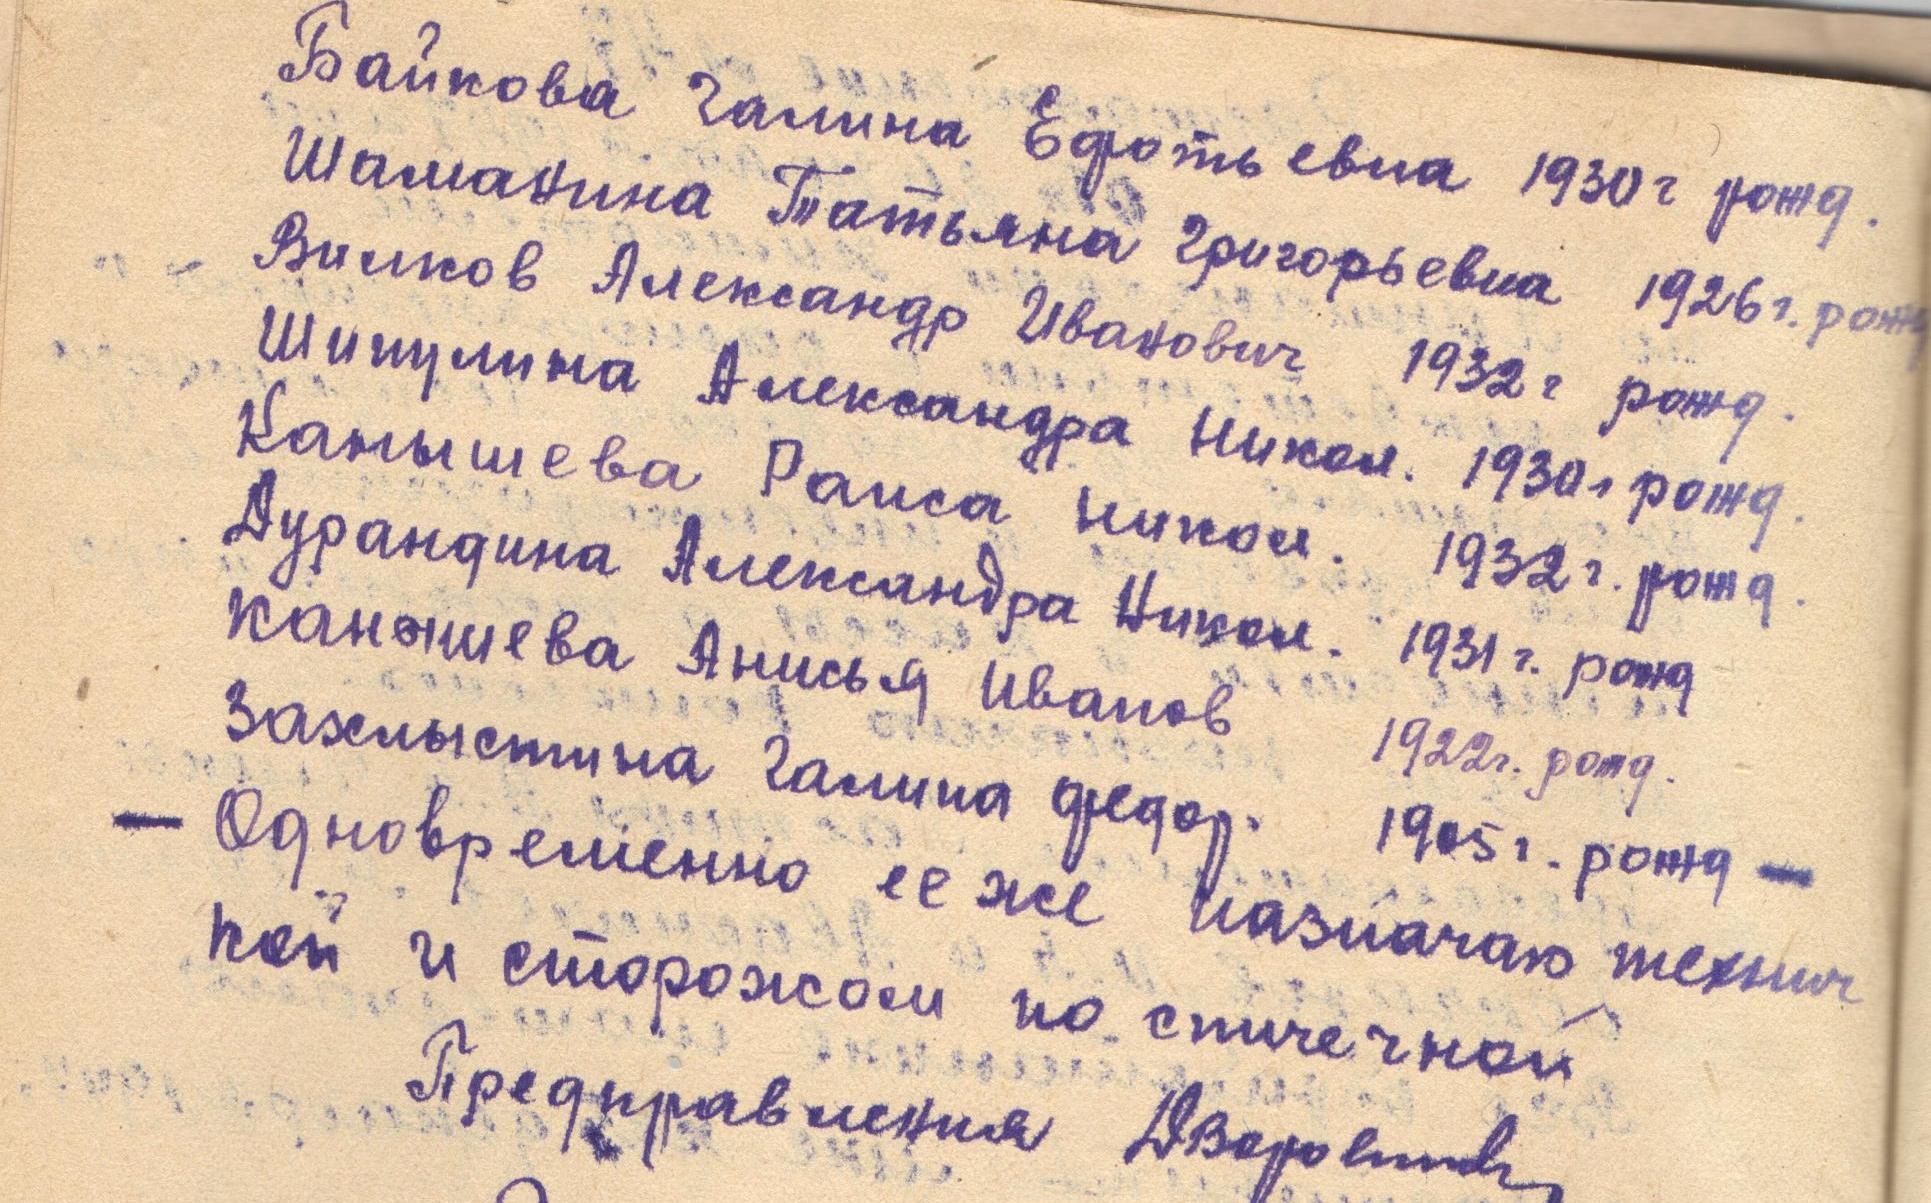 Байкова Галина Ефотьевна 1930г рожд.
Шаманина Татьяна Григорьевна 1926г. рожд
Вилков Александр Иванович 1932г рожд.
Шипулина Александра Никол. 1930г рожд.
Канышева Раиса Никол. 1932г. рожд.
Дурандина Александра Никол. 1931г. рожд
Канышева Анисья Иванов 1922г. рожд.
Захлыстина Галина Федор. 1905г. рожд —
— Одновременно ее же назначаю технич
кой и сторожом по спичечной
Предправления